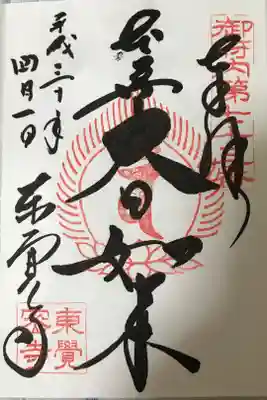 奉拝
御府内第
本尊
大日如来
平成三十年
四月一日
東覚寺
東覺
密寺